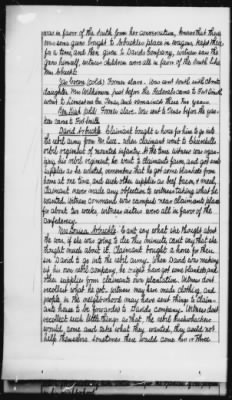 was in favor of the South from her conversation, knows that they
some arms guns brought to Arbuckles place in wagons, kept there
for a time, and then given to Davids Company, witness saw the
guns himself, witness children were all in favor of the South like
Mrs Arbuckle.
(cold) Former slave. Was sent South with Claimts
daughter Mrs Wilkinson just before the Federals came to Fort Smith
went to Texas, and remained there two years.
(cold) Former slave. Was sent to Texas before the yan-
kees came to Fort Smith
David Arbuckle. Claimant bought a horse for him to go into
the rebel army from the Lees, when claimant went to Evansville
rebel regiment of mounted infantry. At the time witness was organi-
zing his rebel regiment, he went to claimants farm, and got some
supplies as he wanted, remembers that he got some blankets from
home at one time, and such other supplies as beef, bacon & meal.
Claimant never made any objection to witness taking what he
wanted. Witness command was camped near claimants place
for about two weeks, witness sisters were all in favor of the
confederacy.
Mrs Louisa Arbuckle. Can't say what she thought about
the war, if she was going to die this minute, can't say what she
thought much about it. Claimant bought a horse for their
son David to go into the rebel army. When David was making
up his own rebel company, he might have got some blankets and
other supplies from claimants own plantation. Witness does not
recollect what he got. Witness may have made clothing, and
people in the neighborhood may have sent things to claim-
ants house to be forwarded to Davids company. Witness does not
recollect such little things as that, the rebel bushwhackers
would come and take what they wanted, they would not
help themselves. Sometimes there would come two or three